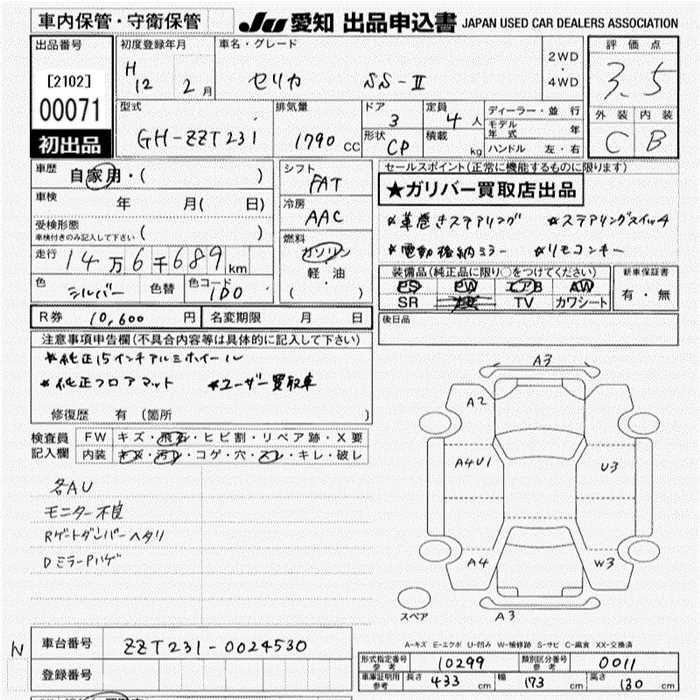 車内保管・守衛保管
JU 愛知 出品申込書 JAPAN USED CAR DEALERS ASSOCIATION
出品番号 [2102] 00071 初出品
初度登録年月 H12 2月
車名・グレード セリカ SS-Ⅱ
2WD・4WD
評価点 3.5
外装 C 内装 B
型式 GH-ZZT231
排気量 1790 CC
ドア 3
形状 CP
定員 4人
積載 kg
ディーラー・並行
モデル年式 年
ハンドル 左・右
車歴 自家用・( )
車検 年 月( 日)
受検形態 車検付きのみ記入して下さい ( )
走行 14万6千689km
色 シルバー 色替 色コード 1D0
シフト FAT
冷房 AAC
燃料 ガソリン 軽油 ( )
セールスポイント(正常に機能するものに限ります)
★ガリバー買取店出品
*革巻きステアリング *ステアリングスイッチ
*電動格納ミラー *リモコンキー
装備品(純正品に限り○をつけてください)
PS PW エアB AW
SR TV カワシート
新車保証書 有・無
R券 10,600円 名変期限 月 日
後日品
注意事項申告欄(不具合内容等は具体的に記入して下さい)
*純正15インチアルミホイール
*純正フロアマット *ユーザー買取車
修復歴 有 (箇所 )
検査員記入欄
FW キズ・飛石・ヒビ割・リペア跡・X要
内装 キズ・汚レ・コゲ・穴・スレ・キレ・破レ
各AU
モニター不良
Rゲートダンパーヘタリ
DミラーPハゲ
A3
A2
A4U1 U3
A4 W3
A3
スペア
A-キズ E-エクボ U-凹み W-補修跡 S-サビ C-腐食 XX-交換済
N 車台番号 ZZT231-0024530
登録番号
形式指定番号 参考 10299 類別区分番号 参考 0011
車庫証明用 参考 長さ 433cm 幅 173cm 高さ 130cm